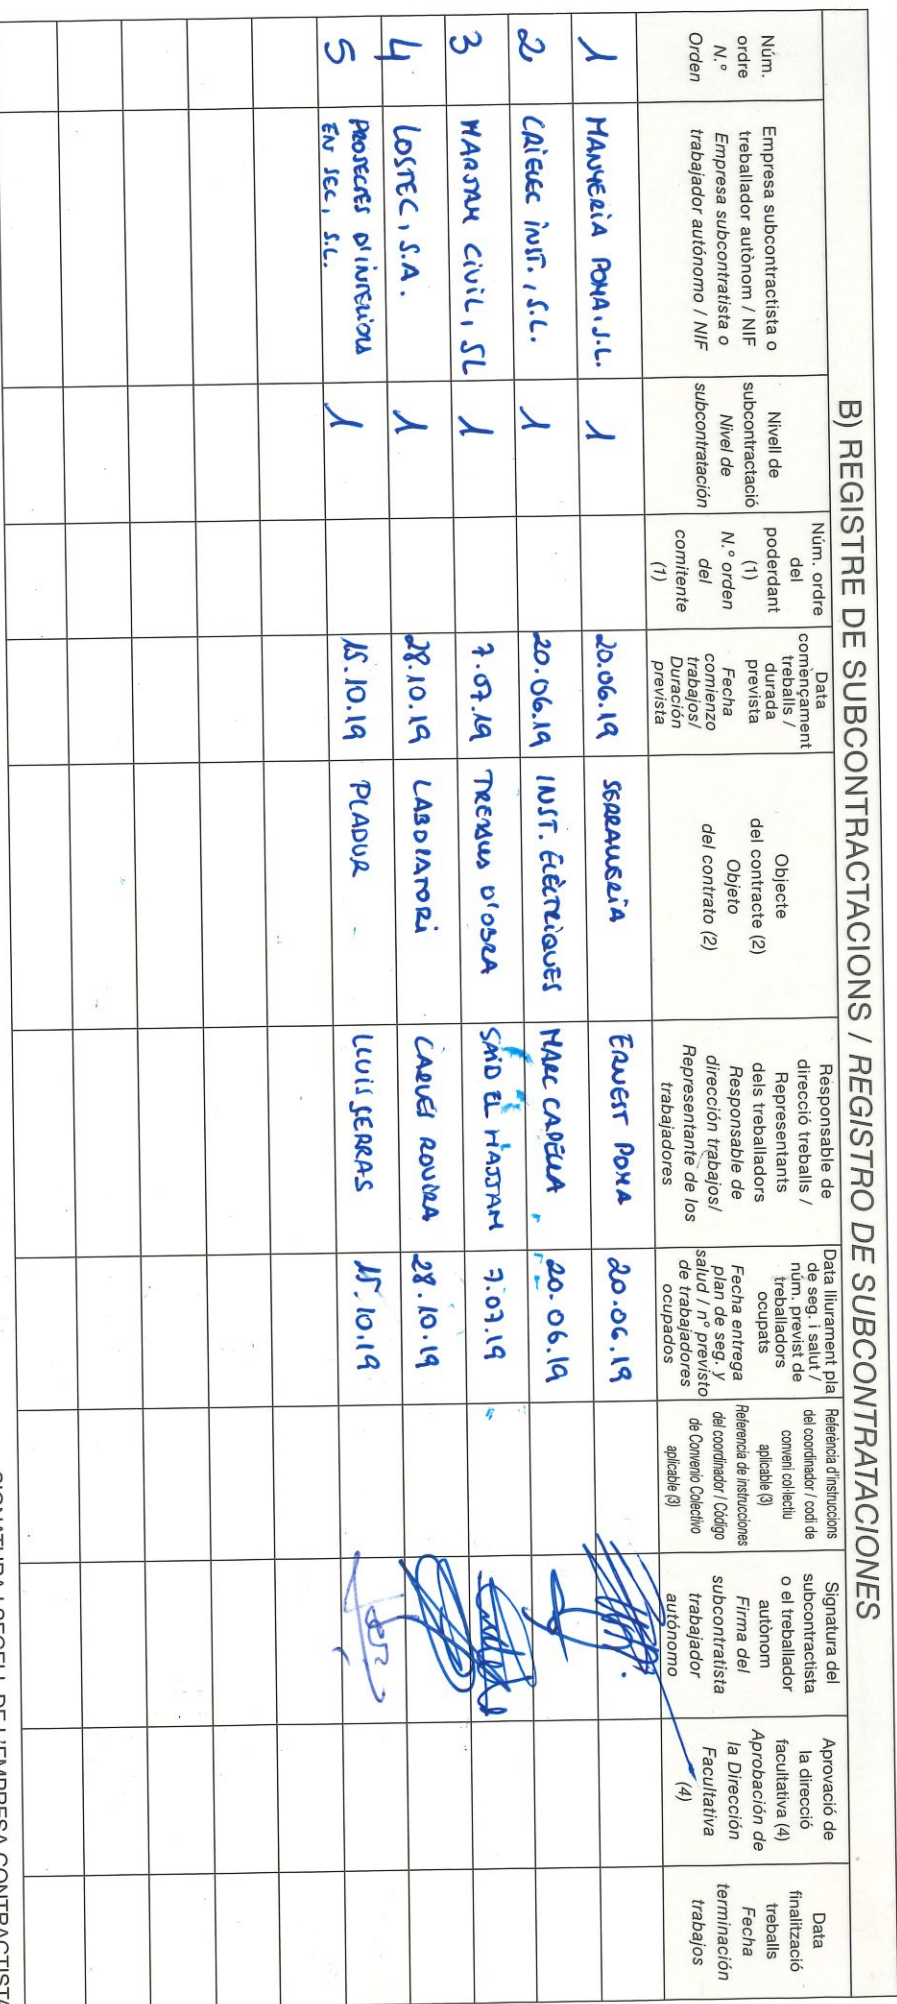 B) REGISTRE DE SUBCONTRACTACIONS / REGISTRO DE SUBCONTRATACIONES
Núm.
ordre
N.º
Orden
Empresa subcontractista o
treballador autònom / NIF
Empresa subcontratista o
trabajador autónomo / NIF
Nivell de
subcontractació
Nivel de
subcontratación
Núm. ordre
del
poderdant
(1)
N.º orden
del
comitente
(1)
Data
començament
treballs /
durada
prevista
Fecha
comienzo
trabajos/
Duración
prevista
Objecte
del contracte (2)
Objeto
del contrato (2)
Responsable de
direcció treballs /
Representants
dels treballadors
Responsable de
dirección trabajos/
Representante de los
trabajadores
Data lliurament pla
de seg. i salut /
núm. previst de
treballadors
ocupats
Fecha entrega
plan de seg. y
salud / nº previsto
de trabajadores
ocupados
Referència d'instruccions
del coordinador / codi de
conveni col·lectiu
aplicable (3)
Referencia de instrucciones
del coordinador / Código
de Convenio Colectivo
aplicable (3)
Signatura del
subcontractista
o el treballador
autònom
Firma del
subcontratista
trabajador
autónomo
Aprovació de
la direcció
facultativa (4)
Aprobación de
la Dirección
Facultativa
(4)
Data
finalització
treballs
Fecha
terminación
trabajos
1 MANYERIA POMA, S.L. 1 20.06.19 SERRALLERIA ERNEST POMA 20.06.19
2 CRIELEC INST., S.L. 1 20.06.19 INST. ELÈCTRIQUES MARC CAPELLA 20.06.19
3 HARJAM CIVIL, SL 1 7.07.19 D'OBRA SAID EL HAJJAM 7.07.19
4 LOSTEC, S.A. 1 28.10.19 LABORATORI CARLES ROVIRA 28.10.19
5 PROJECTES D'INTERIORS
EN SEC, S.L. 1 15.10.19 PLADUR LLUIS SERRAS 15.10.19
SIGNATURA I SEGELL DE L'EMPRESA CONTRACTISTA